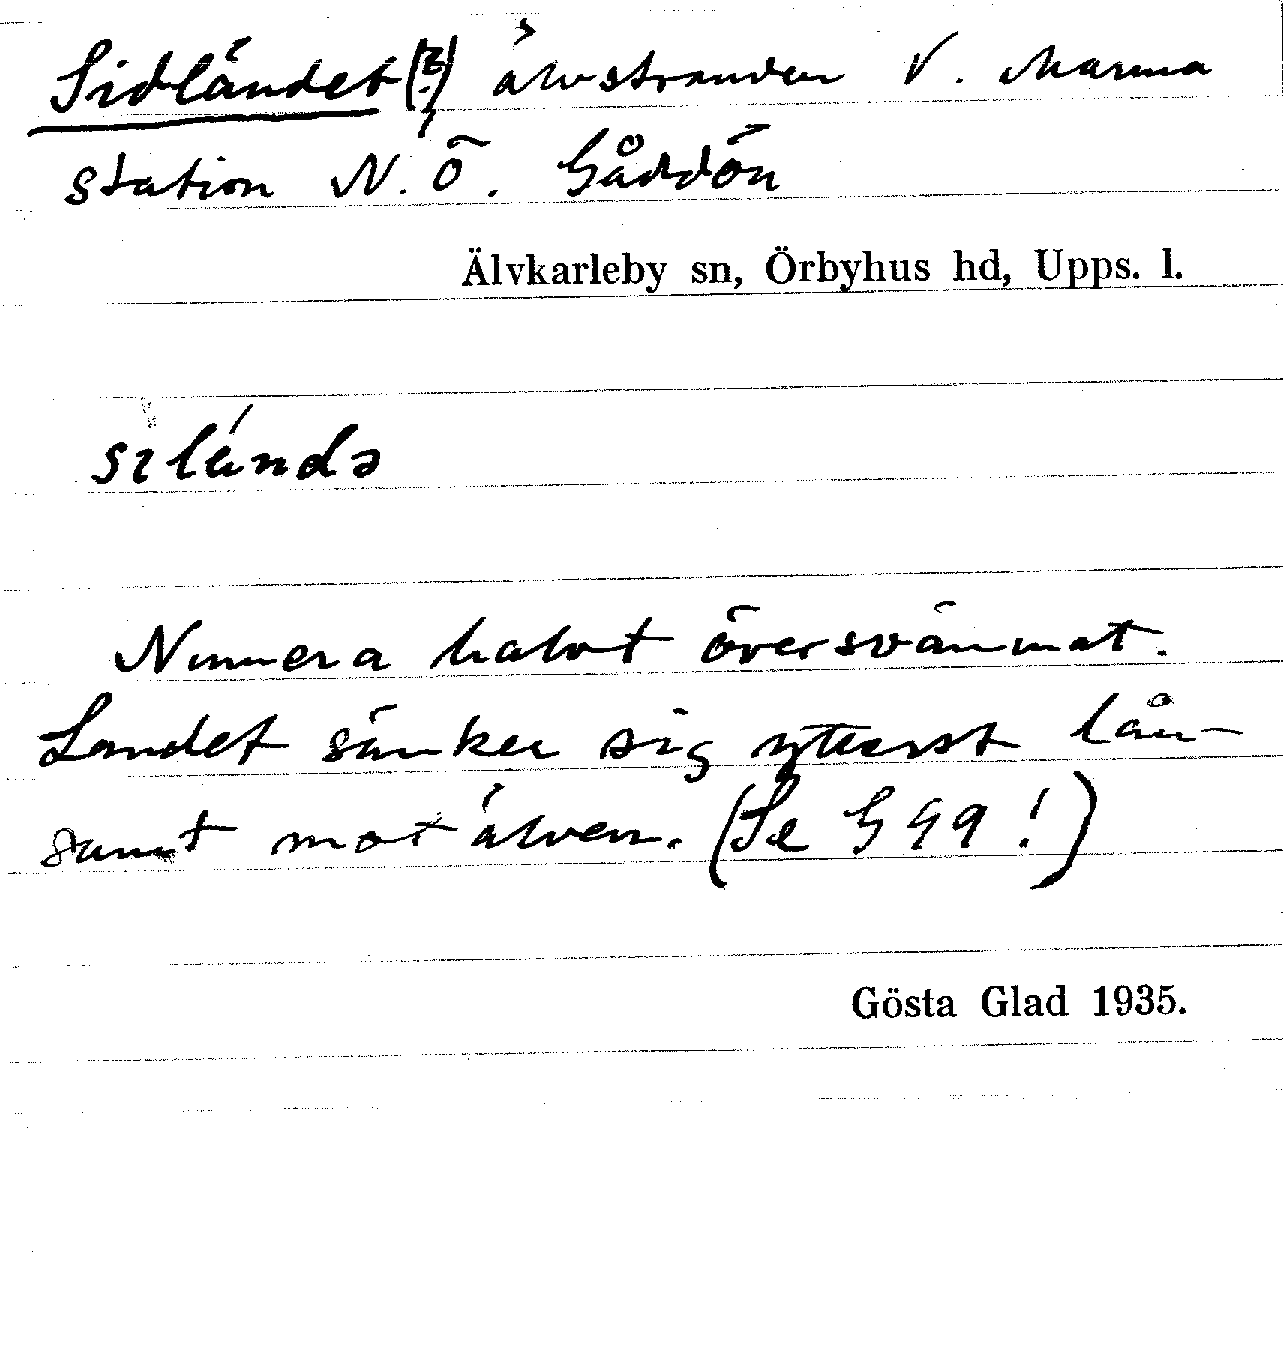 Sidländet (?) älvstranden V. Marma
station N. Ö. Gåddön
Älvkarleby sn, Örbyhus hd, Upps. l.
siländə
Numera halvt översvämmat.
Landet sänker sig ytterst lån-
samt mot älven. (Se G 99!)
Gösta Glad 1935.